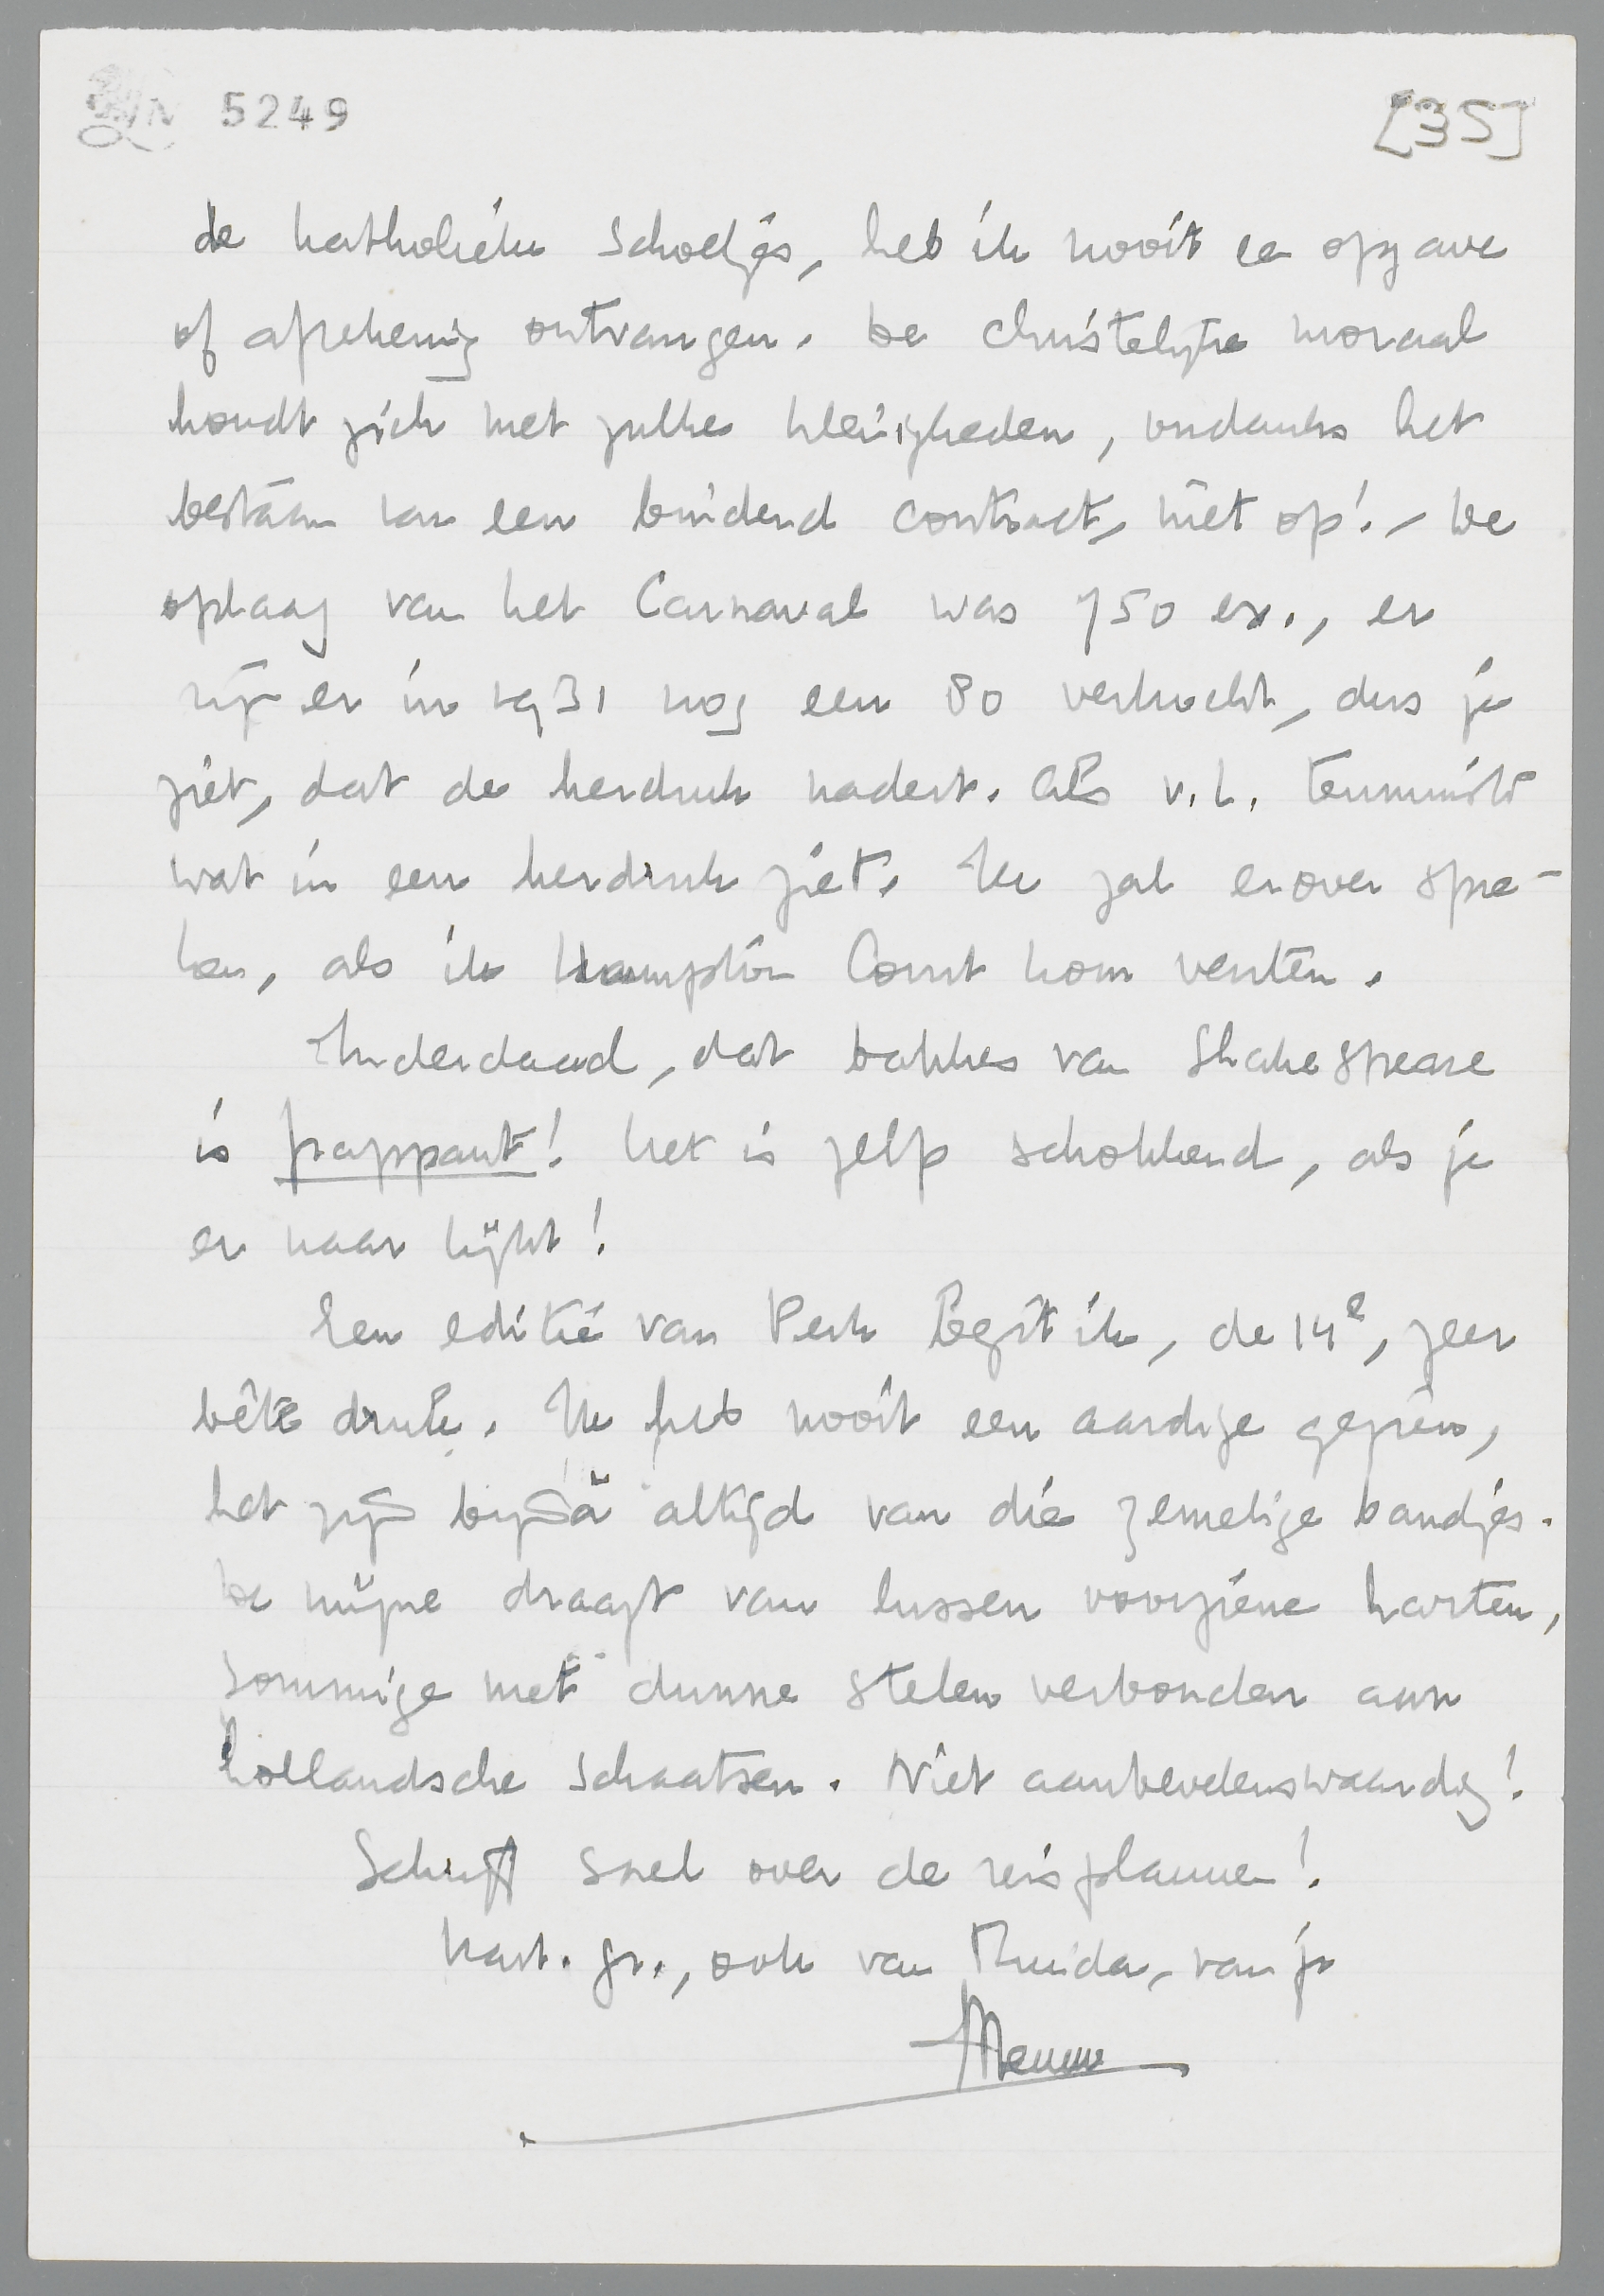 5249
[35]
de katholieke schoeljes, heb ik nooit een opgave
of afrekening ontvangen. De christelijke moraal
houdt zich met zulke kleinigheden, ondanks het
bestaan van een bindend contract, niet op! - De
oplaag van het Carnaval was 750 ex., en
zijn er in 1931 nog een 80 verkocht, dus je
ziet, dat de herdruk nadert. Als v.L. tenminste
wat in een herdruk ziet. Ik zal erover spre-
ken, als ik Hampton Court kom venten.
Inderdaad, dat bakkes van Shakespeare
is frappant! Het is zelfs schokkend, als je
er naar kijkt!
Een editie van Perk bezit ik, de 14e, zeer
bête druk. Ik heb nooit een aardige gezien,
het zijn bijna altijd van die zemelige bandjes.
De mijne draagt van lussen voorziene harten,
sommige met dunne stelen verbonden aan
hollandsche schaatsen. Niet aanbevelenswaardig!
Schrijf snel over de reisplannen!
Hart. gr., ook van Truida, van je
Menno